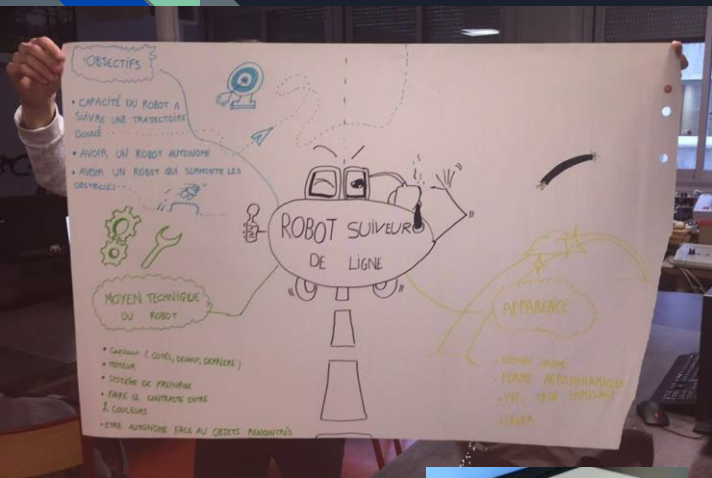 OBJECTIFS
• CAPACITÉ DU ROBOT A
SUIVRE UNE TRAJECTOIRE
DONNÉ
• AVOIR UN ROBOT AUTONOME
• AVOIR UN ROBOT QUI SURMONTE LES
OBSTACLES
ROBOT SUIVEUR
DE LIGNE
MOYEN TECHNIQUE
DU ROBOT
• Capteur (COTÉS, DEVANT, DERRIÈRE)
• MOTEUR
• SYSTÈME DE FREINAGE
• FAIRE LE CONTRASTE ENTRE
2 COULEURS
• ETRE AUTONOME FACE AU OBJETS RENCONTRÉS
APPARENCE
• DESIGN SOIGNÉ
• FORME AÉRODYNAMIQUE
• PAS TROP IMPOSANT